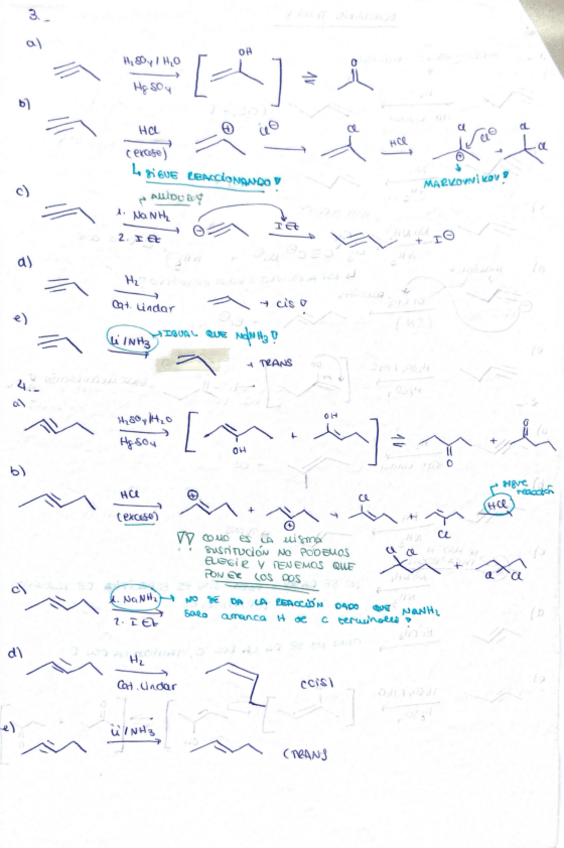 3.-
a)
H₂SO₄ / H₂O
HgSO₄
OH
⇌
O
b)
HCl
(exceso)
⊕
Cl⊖
Cl
HCl
Cl
Cl⊖
⊕
Cl
Cl
↳ SIGUE REACCIONANDO!
MARKOVNIKOV!
c)
1. NaNH₂
2. IEt
⊖
IEt
+ I⊖
d)
H₂
Cat. Lindar
→ cis!
e)
Li/NH₃
→ IGUAL QUE Na/NH₃!
→ TRANS
4.-
a)
H₂SO₄/H₂O
HgSO₄
OH
+
OH
⇌
O
+
O
b)
HCl
(exceso)
⊕
+
⊕
→
Cl
+
Cl
HCl
→ SIGUE REACCIÓN
COMO ES LA MISMA
SUSTITUCIÓN NO PODEMOS
ELEGIR Y TENEMOS QUE
PONER LOS DOS
Cl
Cl
+
Cl
Cl
c)
1. NaNH₂
2. IEt
→ NO SE DA LA REACCIÓN DADO QUE NaNH₂
solo arranca H de C terminales!
d)
H₂
Cat. Lindar
(cis)
e)
Li/NH₃
(TRANS